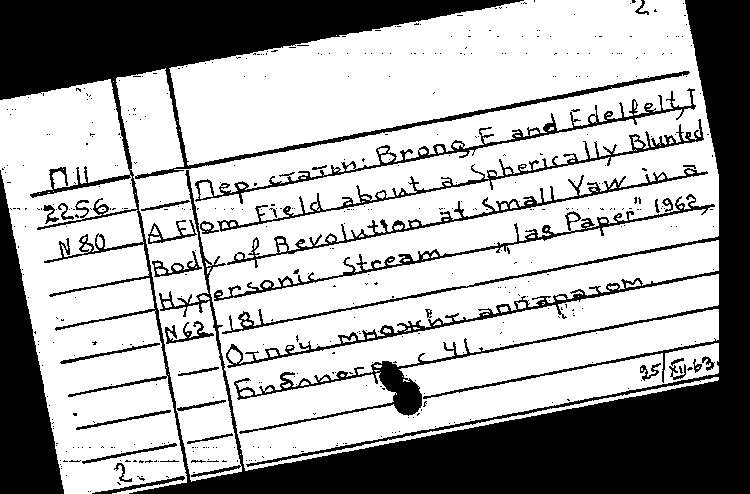 2.
П11
2256
N80
Пер. статьи: Brong, F and Edelfelt, I
A Flom Field about a Spherically Blunted
Body of Revolution at Small Yaw in a
Hypersonic Stream. „Ias Paper" 1962,
N62-181.
Отпеч. множит. аппаратом.
Библиогр. с 41.
25/XII-63.
2.